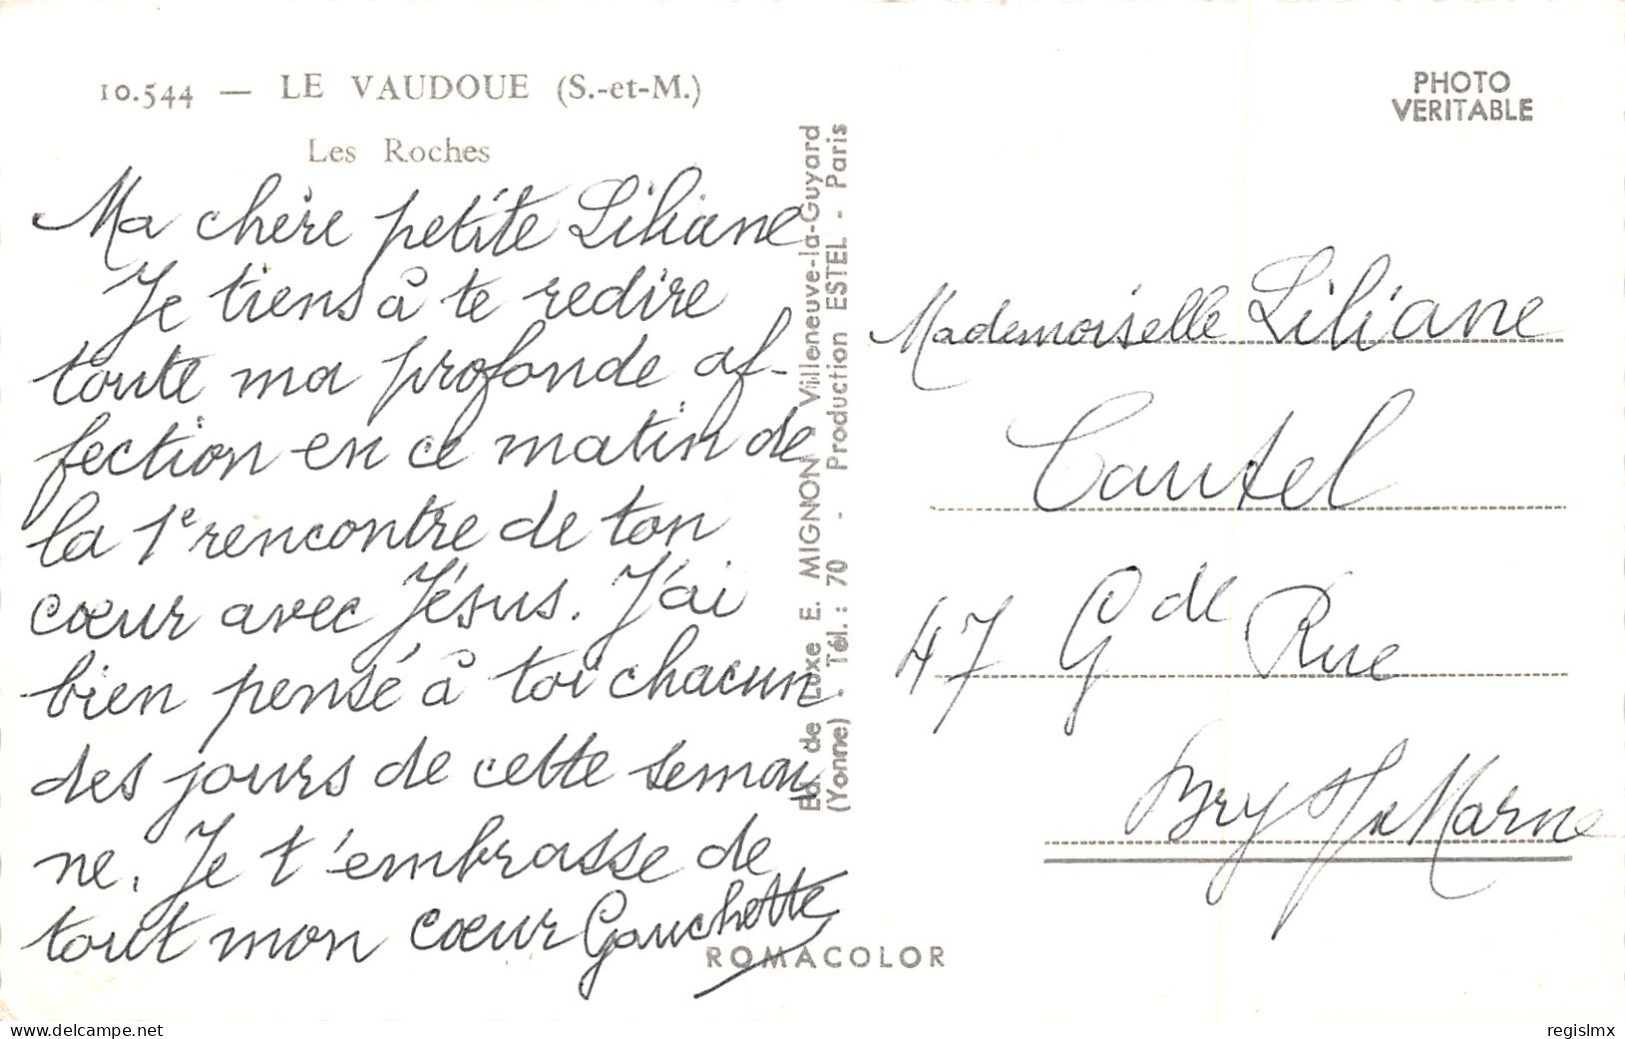 10.544 — LE VAUDOUE (S.-et-M.)
Les Roches
Ma chère petite Liliane
Je tiens à te redire
toute ma profonde af-
fection en ce matin de
la 1e rencontre de ton
cœur avec Jésus. J'ai
bien pensé à toi chacun
des jours de cette semai
ne. Je t'embrasse de
tout mon cœur Gauchette
Ed. de Luxe E. MIGNON Villeneuve-la-Guyard
(Yonne) - Tél. : 70 - Production ESTEL - Paris
ROMACOLOR
PHOTO
VERITABLE
Mademoiselle Liliane
Cautel
47 Gde Rue
Bry s/ Marne
delcampe.net
regislmx